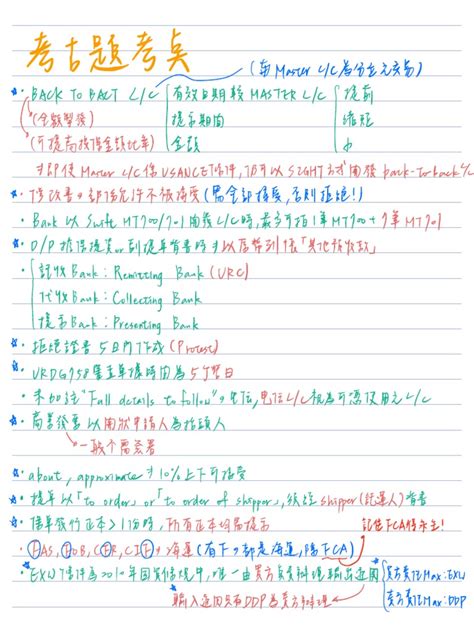 考古題考點
(與Master L/C為分立之交易)
★• BACK TO BACT L/C 有效日期較MASTER L/C 提前
(全額墊後) 提示期間 縮短
(可提高投保金額比率) 金額 小
即使Master L/C係USANCE條件,仍可以SIGHT方式開發back-to-back L/C
★• 修改書 部份允許不被接受(需全部接受,否則拒絕!)
• Bank以Swift MT700/701開發L/C時,最多可拍1筆MT700+7筆MT701
• D/P擔保提貨or副提單背書時 以原幣列帳「其他預收款」
• 託收Bank:Remitting Bank (URC)
代收Bank:Collecting Bank
提示Bank:Presenting Bank
• 拒絕證書5日內作成(Protest)
• URDG758審查單據時間為5營業日
• 未加註"Full details to follow"之電信,電信L/C視為可憑使用之L/C
★• 商業發票以開狀申請人為抬頭人
一般不需簽署
★• about, approximate 10%上下可接受
★• 提單以「to order」or「to order of shipper」,須經shipper(託運人)背書
★• 保單我們正本>1份時,所有正本均需提示
記住FCA條件主!
★• FAS, FOB, CFR, CIF→海運(有F or 都是海運,除FCA)
★• EXW條件為2010年國貿條規中,唯一由買方負責辦理輸出通關
賣方責任Max:EXW
買方責任Max:DDP
輸入通關只有DDP為賣方辦理